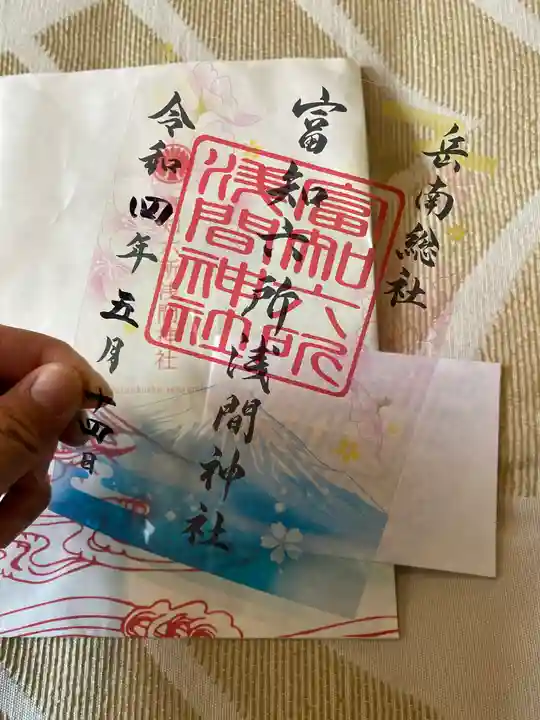 岳南総社
富知六所浅間神社
富知六所
浅間神社
令和四年五月十四日